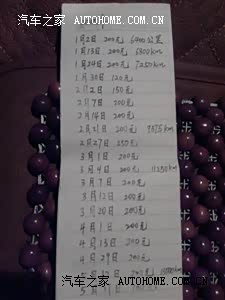 汽车之家 AUTOHOME.COM.CN
1月2日 200元 6400公里
1月13日 200元 6800km
1月24日 200元 7250km
1月30日 120元
2月2日 150元
2月7日 200元
2月14日 200元
2月21日 200元
2月27日 250元
3月1日 200元
3月4日 200元 11250km
3月7日 200元
3月12日 200元
3月20日 200元
4月1日 200元
4月13日 200元
4月29日 200元
汽车之家 AUTOHOME.COM.CN